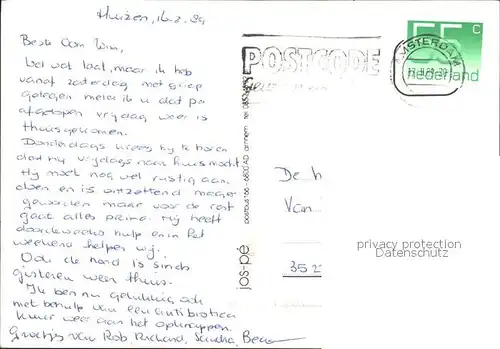 Huizen, 16.2.89
Beste Oom Wim,
Wel wat laat, maar ik heb
vanaf zaterdag met griep
gelegen meen ik u dat pa
afgelopen vrijdag weer is
thuisgekomen.
Donderdags kreeg hij te horen
dat hij vrijdags naar huis mocht.
Hij moet nog wel rustig aan
doen en is ontzettend mager
geworden maar voor de rest
gaat alles prima. Hij heeft
doordeweeks hulp en in het
weekend helpen wij.
Ook de hond is sinds
gisteren weer thuis.
Ik ben nu gelukkig ook
met behulp van een antibiotica
kuur weer aan het opknappen.
Groetjes van Rob, Richard, Sandra,
55 c
nederland
POSTCODE
AMSTERDAM
De h
Van
3522
jos-pé
postbus 166 - 6800 AD arnhem tel.
privacy protection
Datenschutz